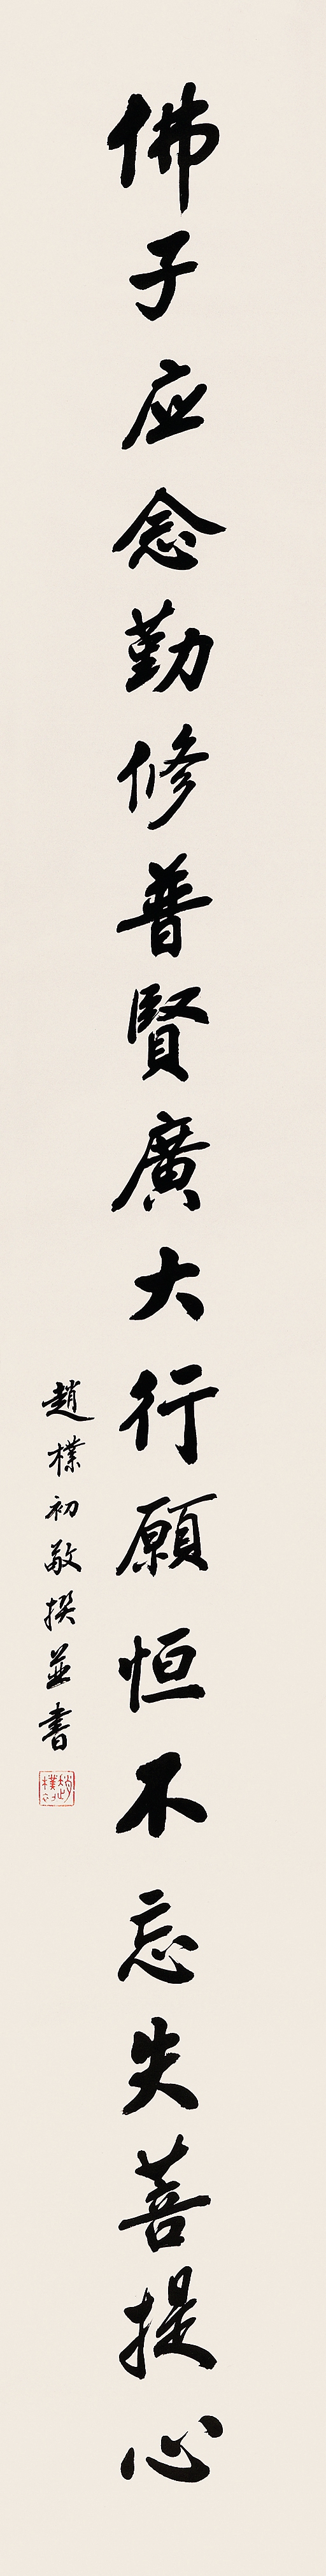 佛子应念勤修普賢廣大行願恒不忘失菩提心
趙樸初敬撰並書
趙樸初